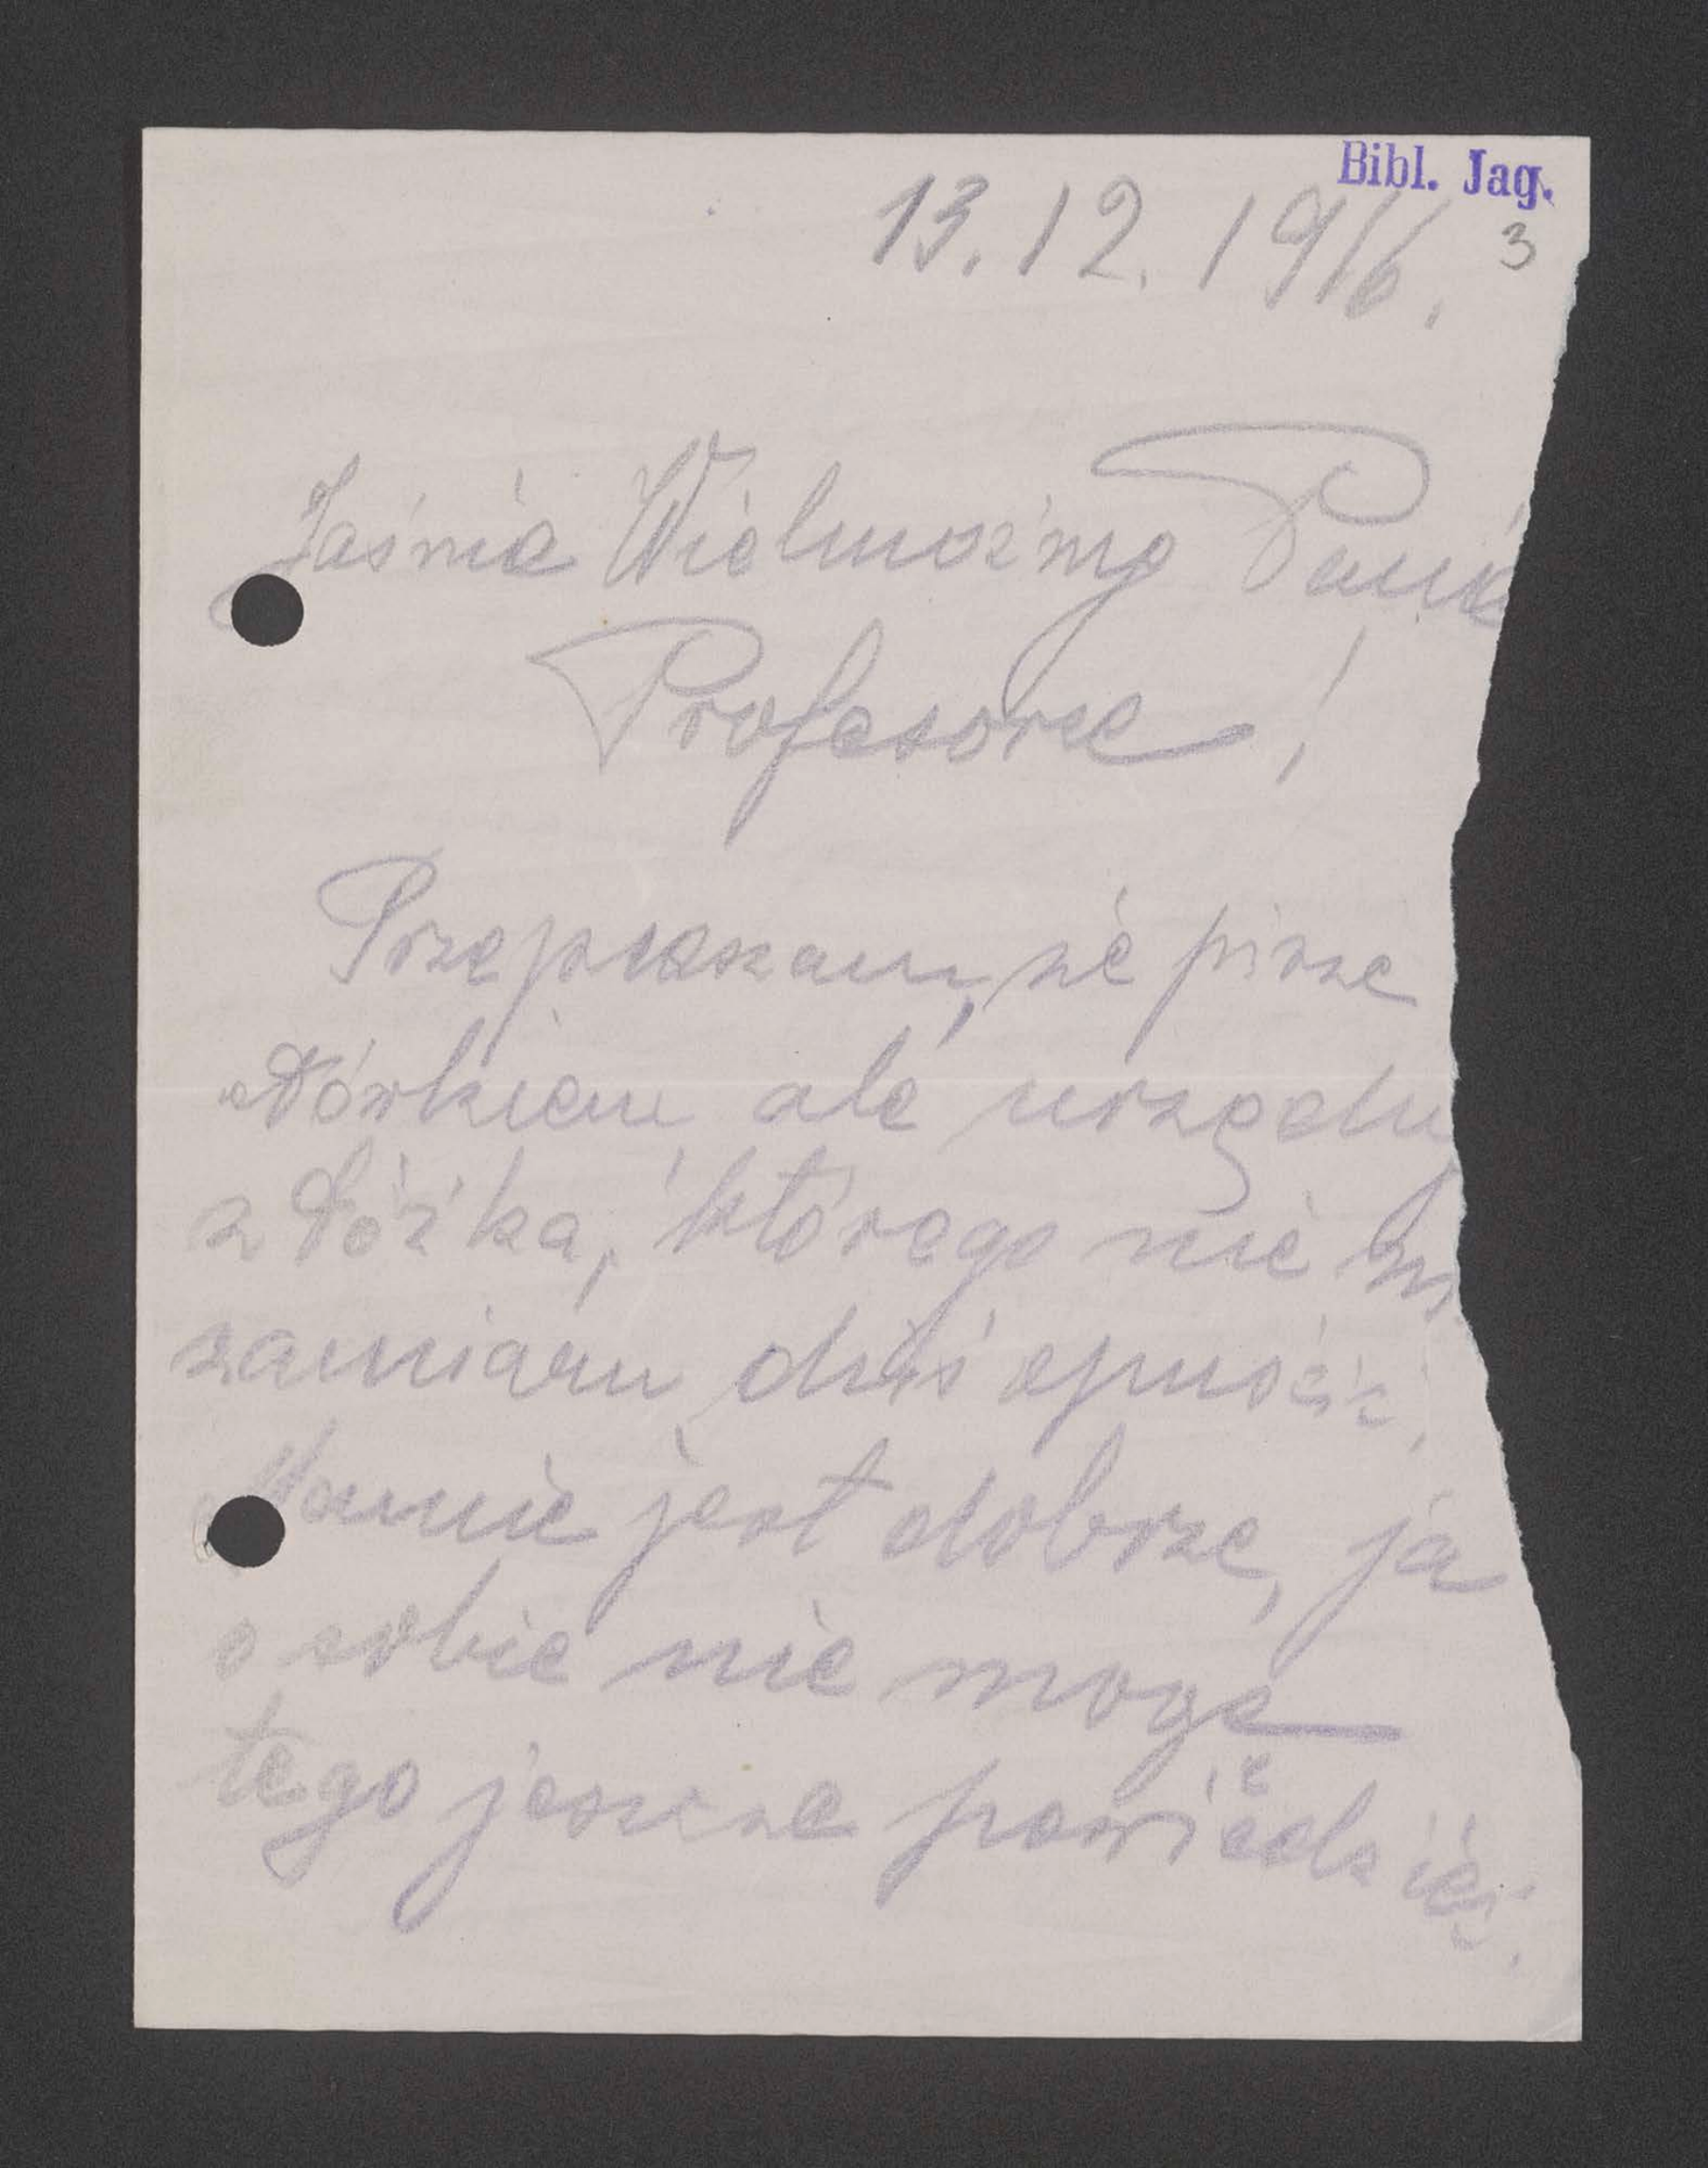 Bibl. Jag.
13.12.1916. 3
Jaśnie Wielmożny Panie
Profesorze!
Przepraszam, że piszę
ołówkiem ale urzęduj
z łóżka, którego nie m
zamiaru dziś opuścić.
Mamie jest dobrze, ja
o sobie nie mogę
tego jeszcze powiedzieć.